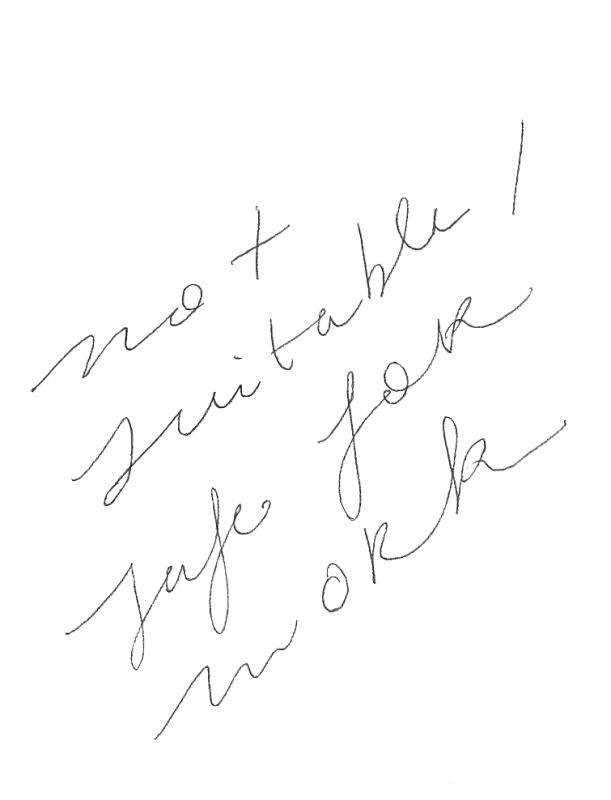 not
suitable /
safe for
work